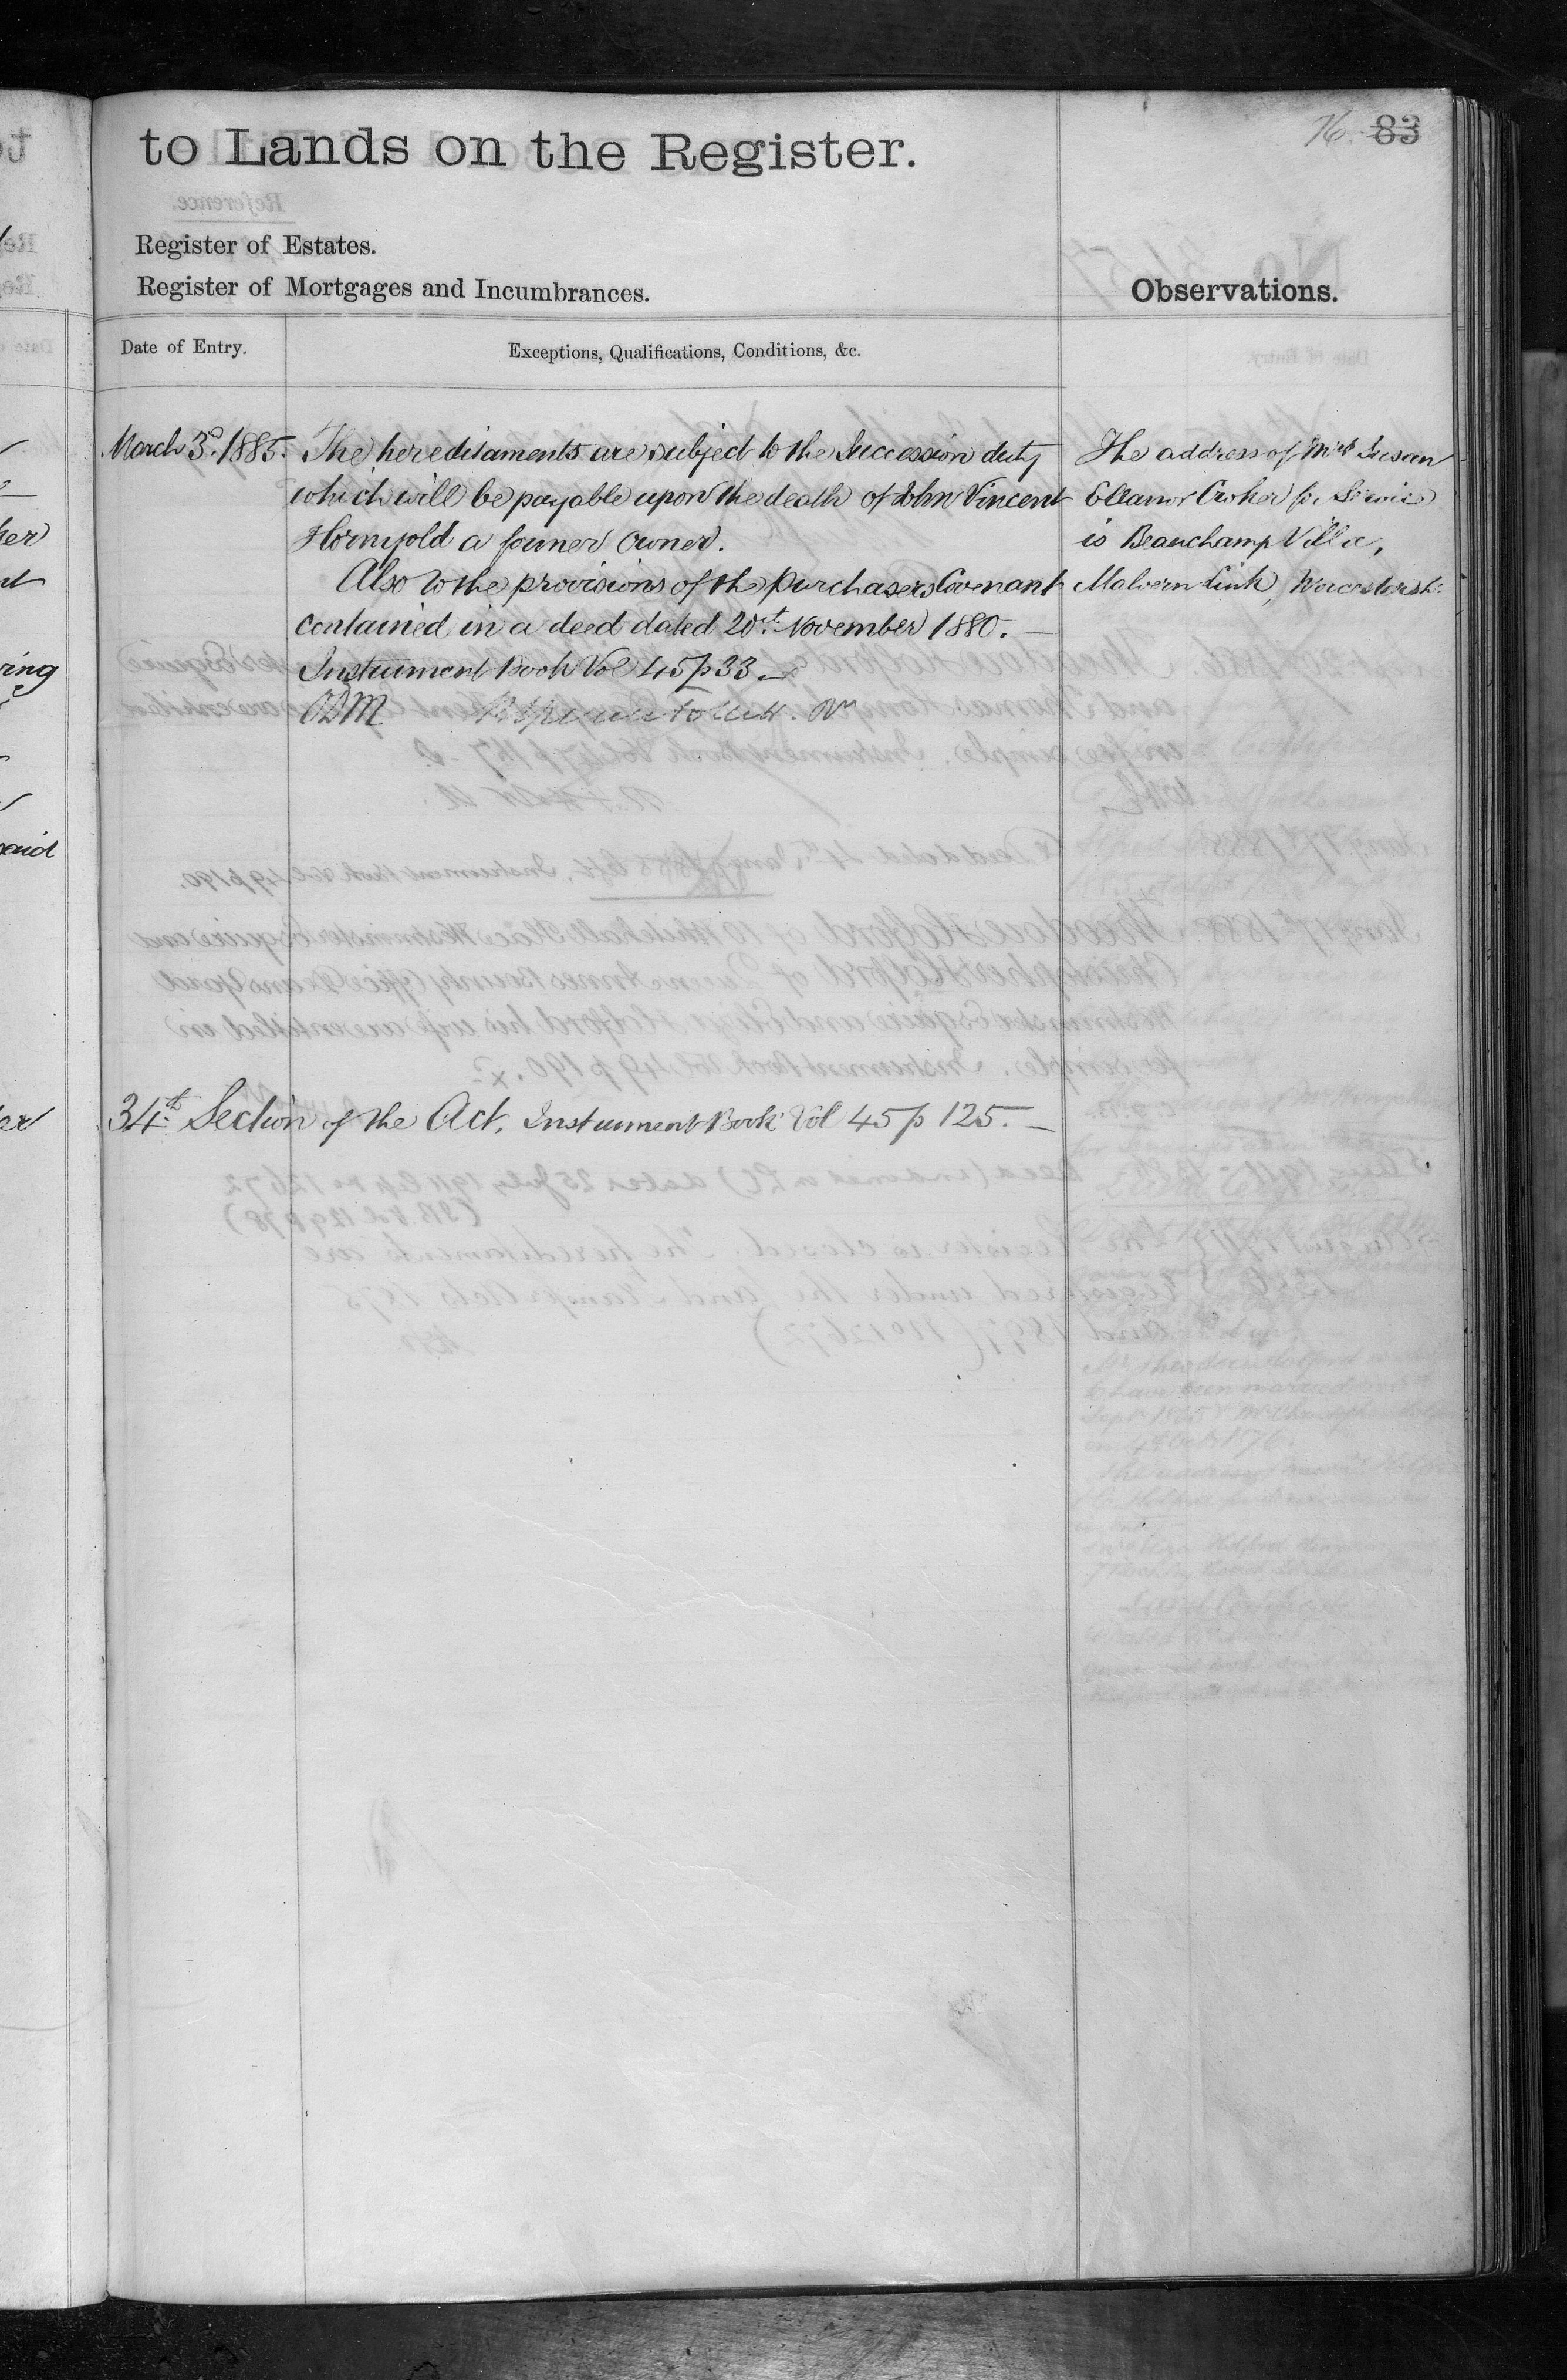 to Lands on the Register.
76. 83
Register of Estates.
Register of Mortgages and Incumbrances.
Observations.
Date of Entry.
Exceptions, Qualifications, Conditions, &c.
March 3d. 1885. The hereditaments are subject to the Succession duty
which will be payable upon the death of John Vincent
Hornyold a former Owner.
Also to the provisions of the purchasers Covenant
contained in a deed dated 20th November 1880. —
Instrument Book Vol 45 p 33
The address of Mrs Susan
Eleanor Croker for Service
is Beauchamp Villa,
Malvern Link, Worcestersh.
34th Section of the Act, Instrument Book Vol 45 p 125. —